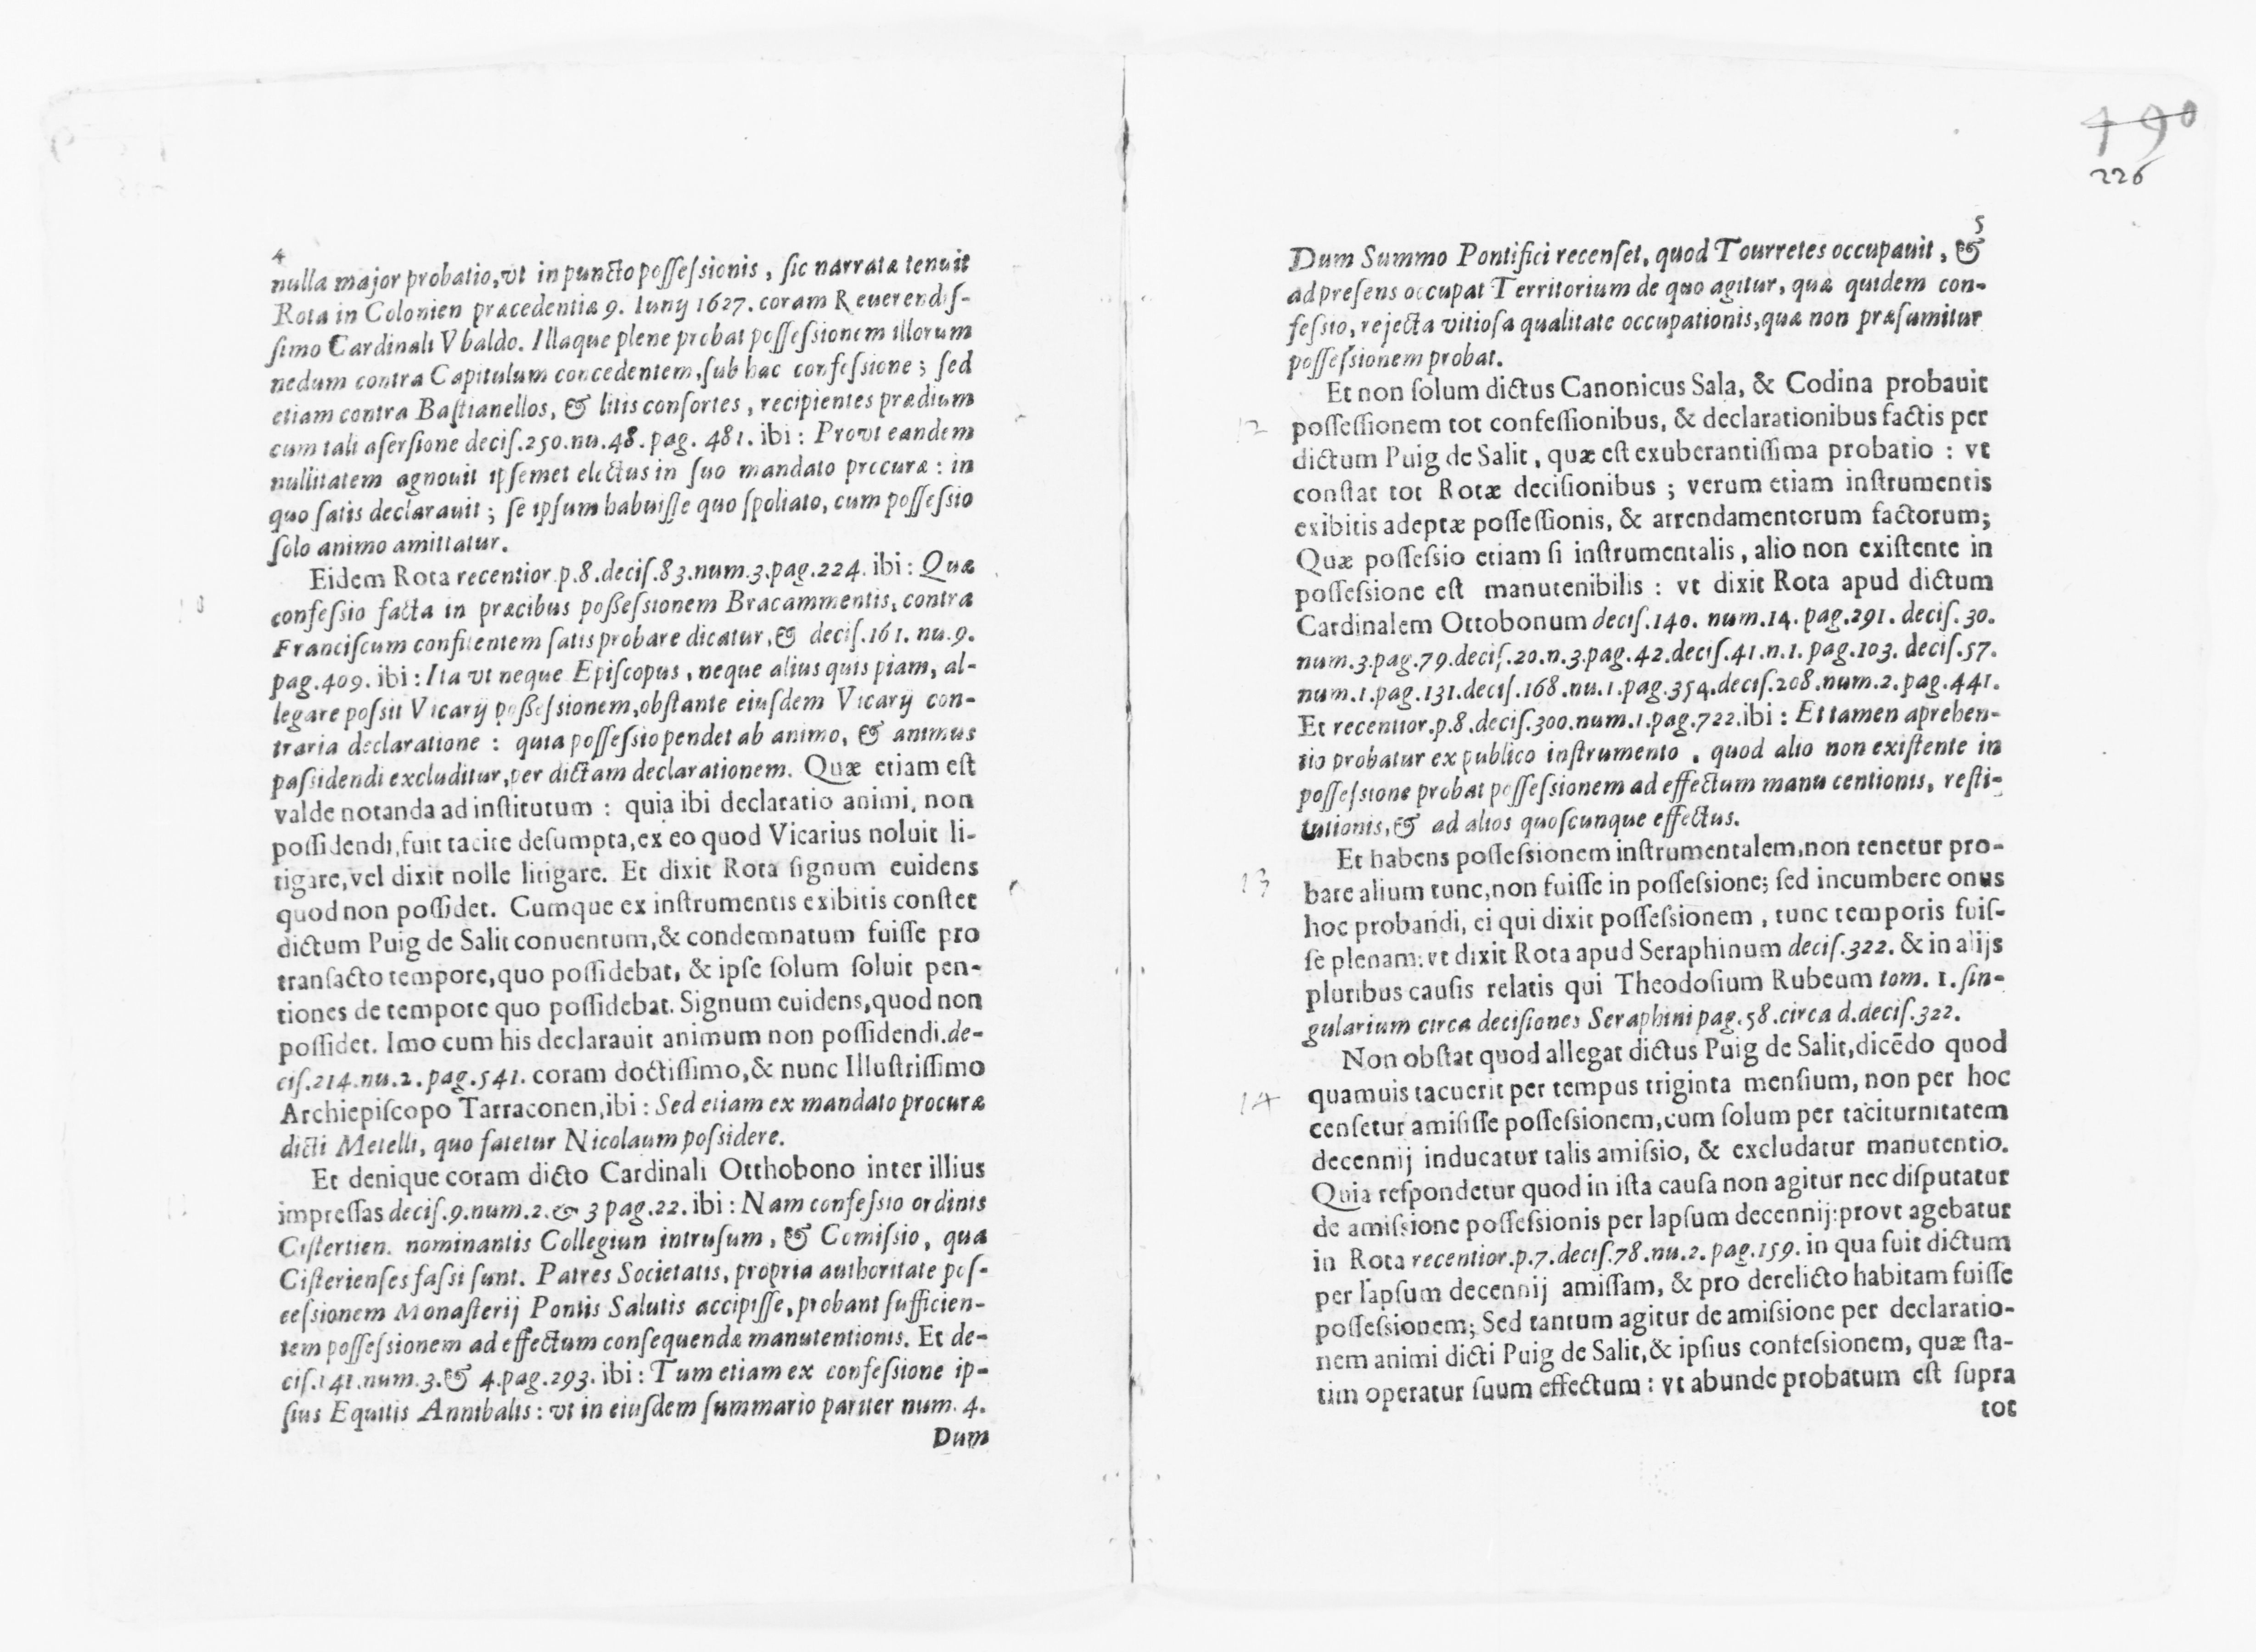 4
nulla major probatio, vt in puncto possessionis, sic narratæ tenuit
Rota in Colonien præcedentiæ 9. Iunij 1627. coram Reuerendis-
simo Cardinali Vbaldo. Illaque plene probat possessionem illorum
nedum contra Capitulum concedentem, sub hac confessione; sed
etiam contra Bastianellos, & litis consortes, recipientes prædium
cum tali asersione decis.250.nu.48. pag. 481. ibi: Provt eandem
nullitatem agnouit ipsemet electus in suo mandato procuræ: in
quo satis declarauit; se ipsum habuisse quo spoliato, cum possessio
solo animo amittatur.
Eidem Rota recentior.p.8.decis.83.num.3.pag.224. ibi: Quæ
confessio facta in præcibus poßessionem Bracammentis, contra
Franciscum confitentem satis probare dicatur, & decis.161. nu.9.
pag.409. ibi: Ita vt neque Episcopus, neque alius quis piam, al-
legare possit Vicarij poßessionem, obstante eiusdem Vicarij con-
traria declaratione: quia possessio pendet ab animo, & animus
passidendi excluditur, per dictam declarationem. Quæ etiam est
valde notanda ad institutum: quia ibi declaratio animi, non
possidendi, fuit tacite desumpta, ex eo quod Vicarius noluit li-
tigare, vel dixit nolle litigare. Et dixit Rota signum euidens
quod non possidet. Cumque ex instrumentis exibitis constet
dictum Puig de Salit conuentum, & condemnatum fuisse pro
transacto tempore, quo possidebat, & ipse solum soluit pen-
tiones de tempore quo possidebat. Signum euidens, quod non
possidet. Imo cum his declarauit animum non possidendi.de-
cis.214.nu.2.pag.541. coram doctissimo, & nunc Illustrissimo
Archiepiscopo Tarraconen, ibi: Sed etiam ex mandato procuræ
dicti Metelli, quo fatetur Nicolaum possidere.
Et denique coram dicto Cardinali Otthobono inter illius
impressas decis.9.num.2.& 3 pag.22. ibi: Nam confessio ordinis
Cistertien. nominantis Collegiun intrusum, & Comissio, qua
Cisterienses fassi sunt. Patres Societatis, propria authoritate pos-
eessionem Monasterij Pontis Salutis accipisse, probant sufficien-
tem possessionem ad effectum consequendæ manutentionis. Et de-
cis.141.num.3.& 4.pag.293. ibi: Tum etiam ex confessione ip-
sius Equitis Annibalis: vt in eiusdem summario pariter num. 4.
Dum
490
226
5
Dum Summo Pontifici recenset, quod Tourretes occupauit, &
ad presens occupat Territorium de quo agitur, quæ quidem con-
fessio, rejecta vitiosa qualitate occupationis, quæ non præsumitur
possessionem probat.
Et non solum dictus Canonicus Sala, & Codina probauit
12 possessionem tot confessionibus, & declarationibus factis per
dictum Puig de Salit, quæ est exuberantissima probatio: vt
constat tot Rotæ decisionibus; verum etiam instrumentis
exibitis adeptæ possessionis, & arrendamentorum factorum;
Quæ possessio etiam si instrumentalis, alio non existente in
possessione est manutenibilis: vt dixit Rota apud dictum
Cardinalem Ottobonum decis.140. num.14. pag.291. decis.30.
num.3.pag.79.decis.20.n.3.pag.42.decis.41.n.1.pag.103. decis.57.
num.1.pag.131.decis.168.nu.1.pag.354.decis.208.num.2.pag.441.
Et recentior.p.8.decis.300.num.1.pag.722.ibi: Et tamen apreben-
tio probatur ex publico instrumento, quod alio non existente in
possessione probat possessionem ad effectum manu centionis, resti-
tutionis, & ad alios quoscunque effectus.
Et habens possessionem instrumentalem, non tenetur pro-
13 bare alium tunc, non fuisse in possessione; sed incumbere onus
hoc probandi, ei qui dixit possessionem, tunc temporis fuis-
se plenam: vt dixit Rota apud Seraphinum decis.322. & in alijs
pluribus causis relatis qui Theodosium Rubeum tom. 1. sin-
gularium circa decisiones Seraphini pag.58.circa d.decis.322.
Non obstat quod allegat dictus Puig de Salit, dicēdo quod
14 quamuis tacuerit per tempus triginta mensium, non per hoc
censetur amisisse possessionem, cum solum per taciturnitatem
decennij inducatur talis amissio, & excludatur manutentio.
Quia respondetur quod in ista causa non agitur nec disputatur
de amissione possessionis per lapsum decennij: provt agebatur
in Rota recentior.p.7.decis.78.nu.2.pag.159. in qua fuit dictum
per lapsum decennij amissam, & pro derelicto habitam fuisse
possessionem; Sed tantum agitur de amissione per declaratio-
nem animi dicti Puig de Salit, & ipsius confessionem, quæ sta-
tim operatur suum effectum: vt abunde probatum est supra
tot